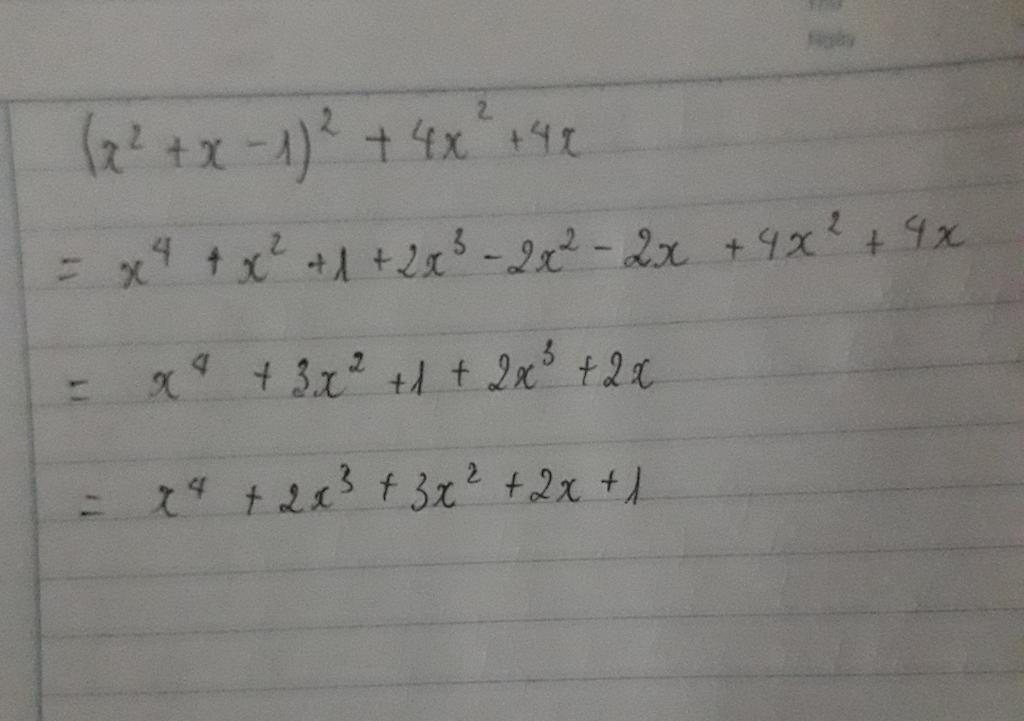 Ngày
(x² + x - 1)² + 4x² + 4x
= x⁴ + x² + 1 + 2x³ - 2x² - 2x + 4x² + 4x
= x⁴ + 3x² + 1 + 2x³ + 2x
= x⁴ + 2x³ + 3x² + 2x + 1